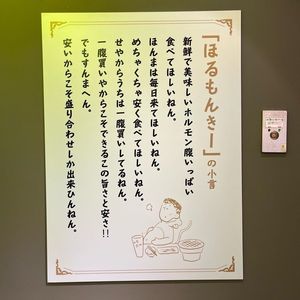 「ほるもんきー」の小言
新鮮で美味しいホルモン腹いっぱい
食べてほしいねん。
ほんまは毎日来てほしいねん。
めちゃくちゃ安く食べてほしいねん。
せやからうちは一腹買いしてるねん。
一腹買いやからこそできるこの旨さと安さ!!
でもすんまへん。
安いからこそ盛り合わせしか出来ひんねん。